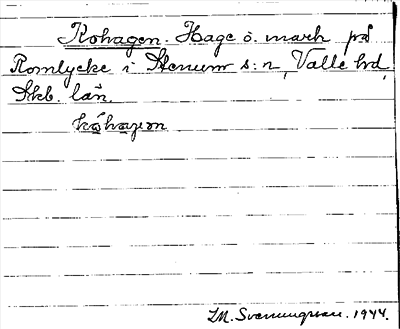 Kohagen. Hage o. mark på
Romlycke i Stenum s:n, Valle hd,
Skb. län.
kohagen
I.M. Svenungsson. 1944.